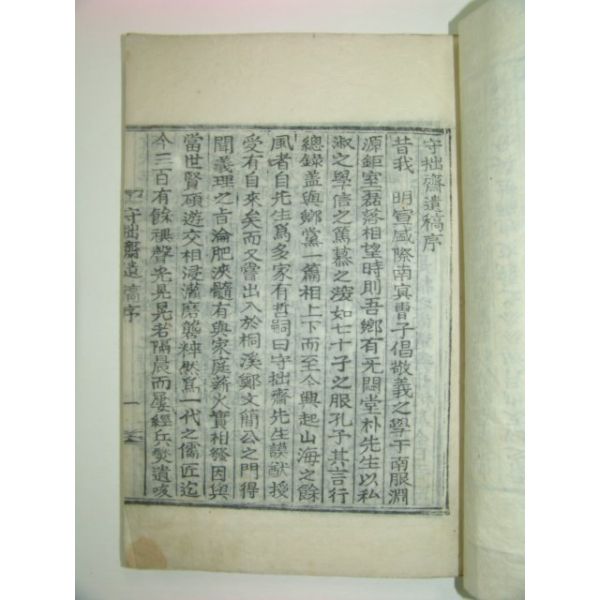 守拙齋遺稿序
昔我 明宣盛際南冥曺子倡敬義之學于南服淵
源鉅室磊落相望時則吾鄉有无悶堂朴先生以私
淑之學信之篤慕之深如七十子之服孔子其言行
總錄盖與鄉黨一篇相上下而至今興起山海之餘
風者自先生爲多家有哲嗣曰守拙齋先生謨猷授
受有自來矣而又嘗出入於桐溪鄭文簡公之門得
聞義理之旨淪肥浹髓有與家庭薪火實相發因與
當世賢碩遊交相浸灌磨礱粹然爲一代之儒匠迄
今三百有餘禩聲光晃晃若隔晨而屡經兵燹遺唆
守拙齋遺稿序 一